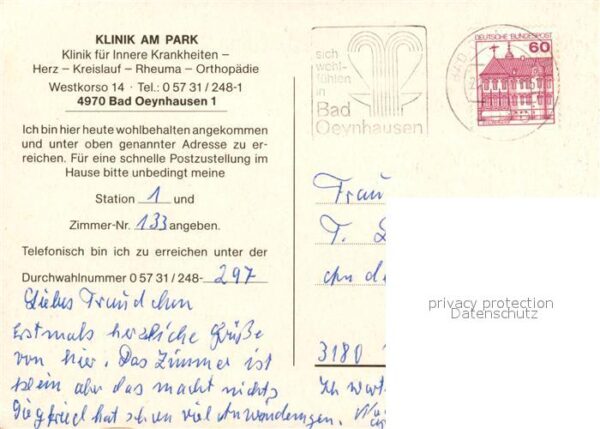 KLINIK AM PARK
Klinik für Innere Krankheiten –
Herz – Kreislauf – Rheuma – Orthopädie
Westkorso 14 · Tel.: 0 57 31 / 248-1
4970 Bad Oeynhausen 1
Ich bin hier heute wohlbehalten angekommen
und unter oben genannter Adresse zu er-
reichen. Für eine schnelle Postzustellung im
Hause bitte unbedingt meine
Station 1 und
Zimmer-Nr. 133 angeben.
Telefonisch bin ich zu erreichen unter der
Durchwahlnummer 0 57 31 / 248- 297
Liebes Traudchen
Erstmals herzliche Grüße
von hier. Das Zimmer ist
klein aber das macht nichts
Siegfried hat schon viel Anwendungen.
sich
wohl-
fühlen
in
Bad
Oeynhausen
DEUTSCHE BUNDESPOST
60
Frau
T.
3180
Ich wart
privacy protection
Datenschutz